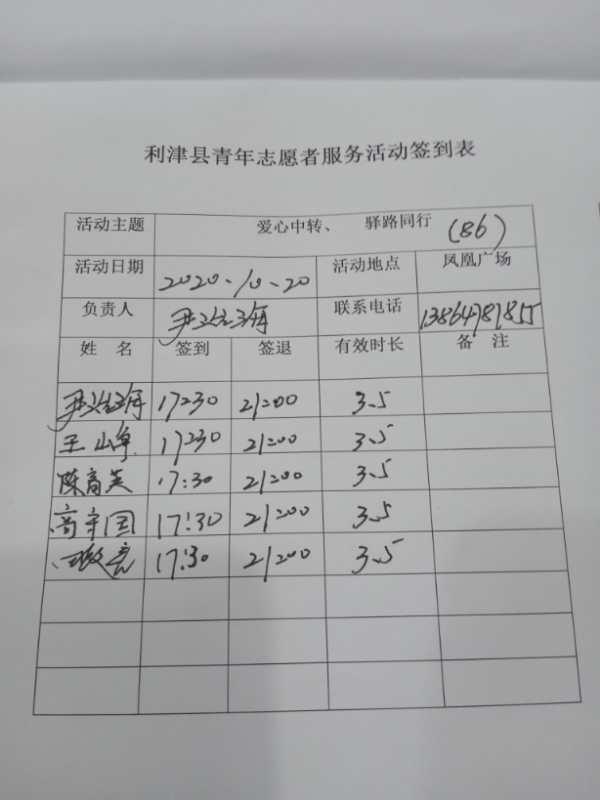 利津县青年志愿者服务活动签到表
活动主题 爱心中转、 驿路同行 (86)
活动日期 2020.10.20 活动地点 凤凰广场
负责人 联系电话 13864787855
姓 名 签到 签退 有效时长 备 注
17:30 21:00 3.5
王山 17:30 21:00 3.5
陈育英 17:30 21:00 3.5
高宇国 17:30 21:00 3.5
17:30 21:00 3.5